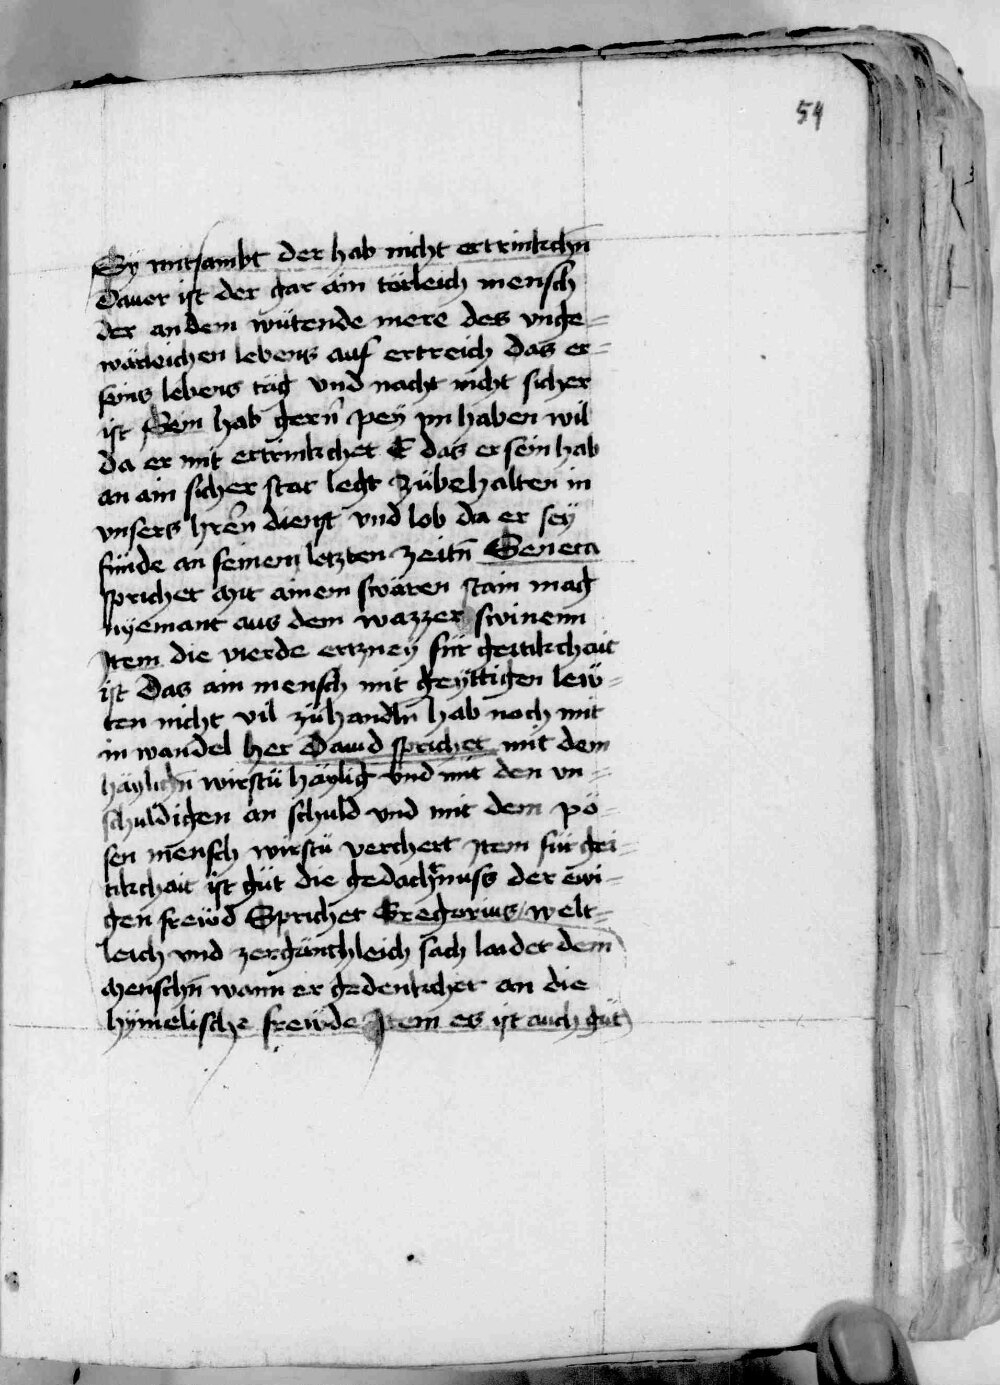 54
Sy mitsambt der hab nicht ertrinkchn̄
Dauor ist der gar ain törleich mensch
der an dem wütende mere des vnge-
wärleichen lebens auf ertreich das er
seins lebens täg vnd nacht nicht sicher
ist Sein hab gern̄ peÿ ym haben wil
da er mit ertrinkchet E das er sein hab
an ain sicher stat legt zübehalten in
vnsers hren̄ dienst vnd lob da er seÿ
fünde an seinem letzten zeitn̄ Seneca
sprichet Mit ainem swären stain mag
nyemant aus dem wazzer swinenn
Item die vierde ertzneÿ für geitikchait
ist Das ain mensch mit geÿttigen lew-
ten nicht vil zühandln̄ hab noch mit
in wandel her Dauid sprichet mit dem
häylichn̄ wirstü häylig vnd mit den vn-
schuldigen an schuld vnd mit dem pö-
sen mensch wirstu verchert Item für gei-
tikchait ist güt die gedachtnuss der ewi-
gen frewd Sprichet Gregorius / welt-
leich vnd zergänchleich sach laidet dem
Menschn̄ wann er gedenkchet an die
hÿmelische frewde Item es ist auch güt